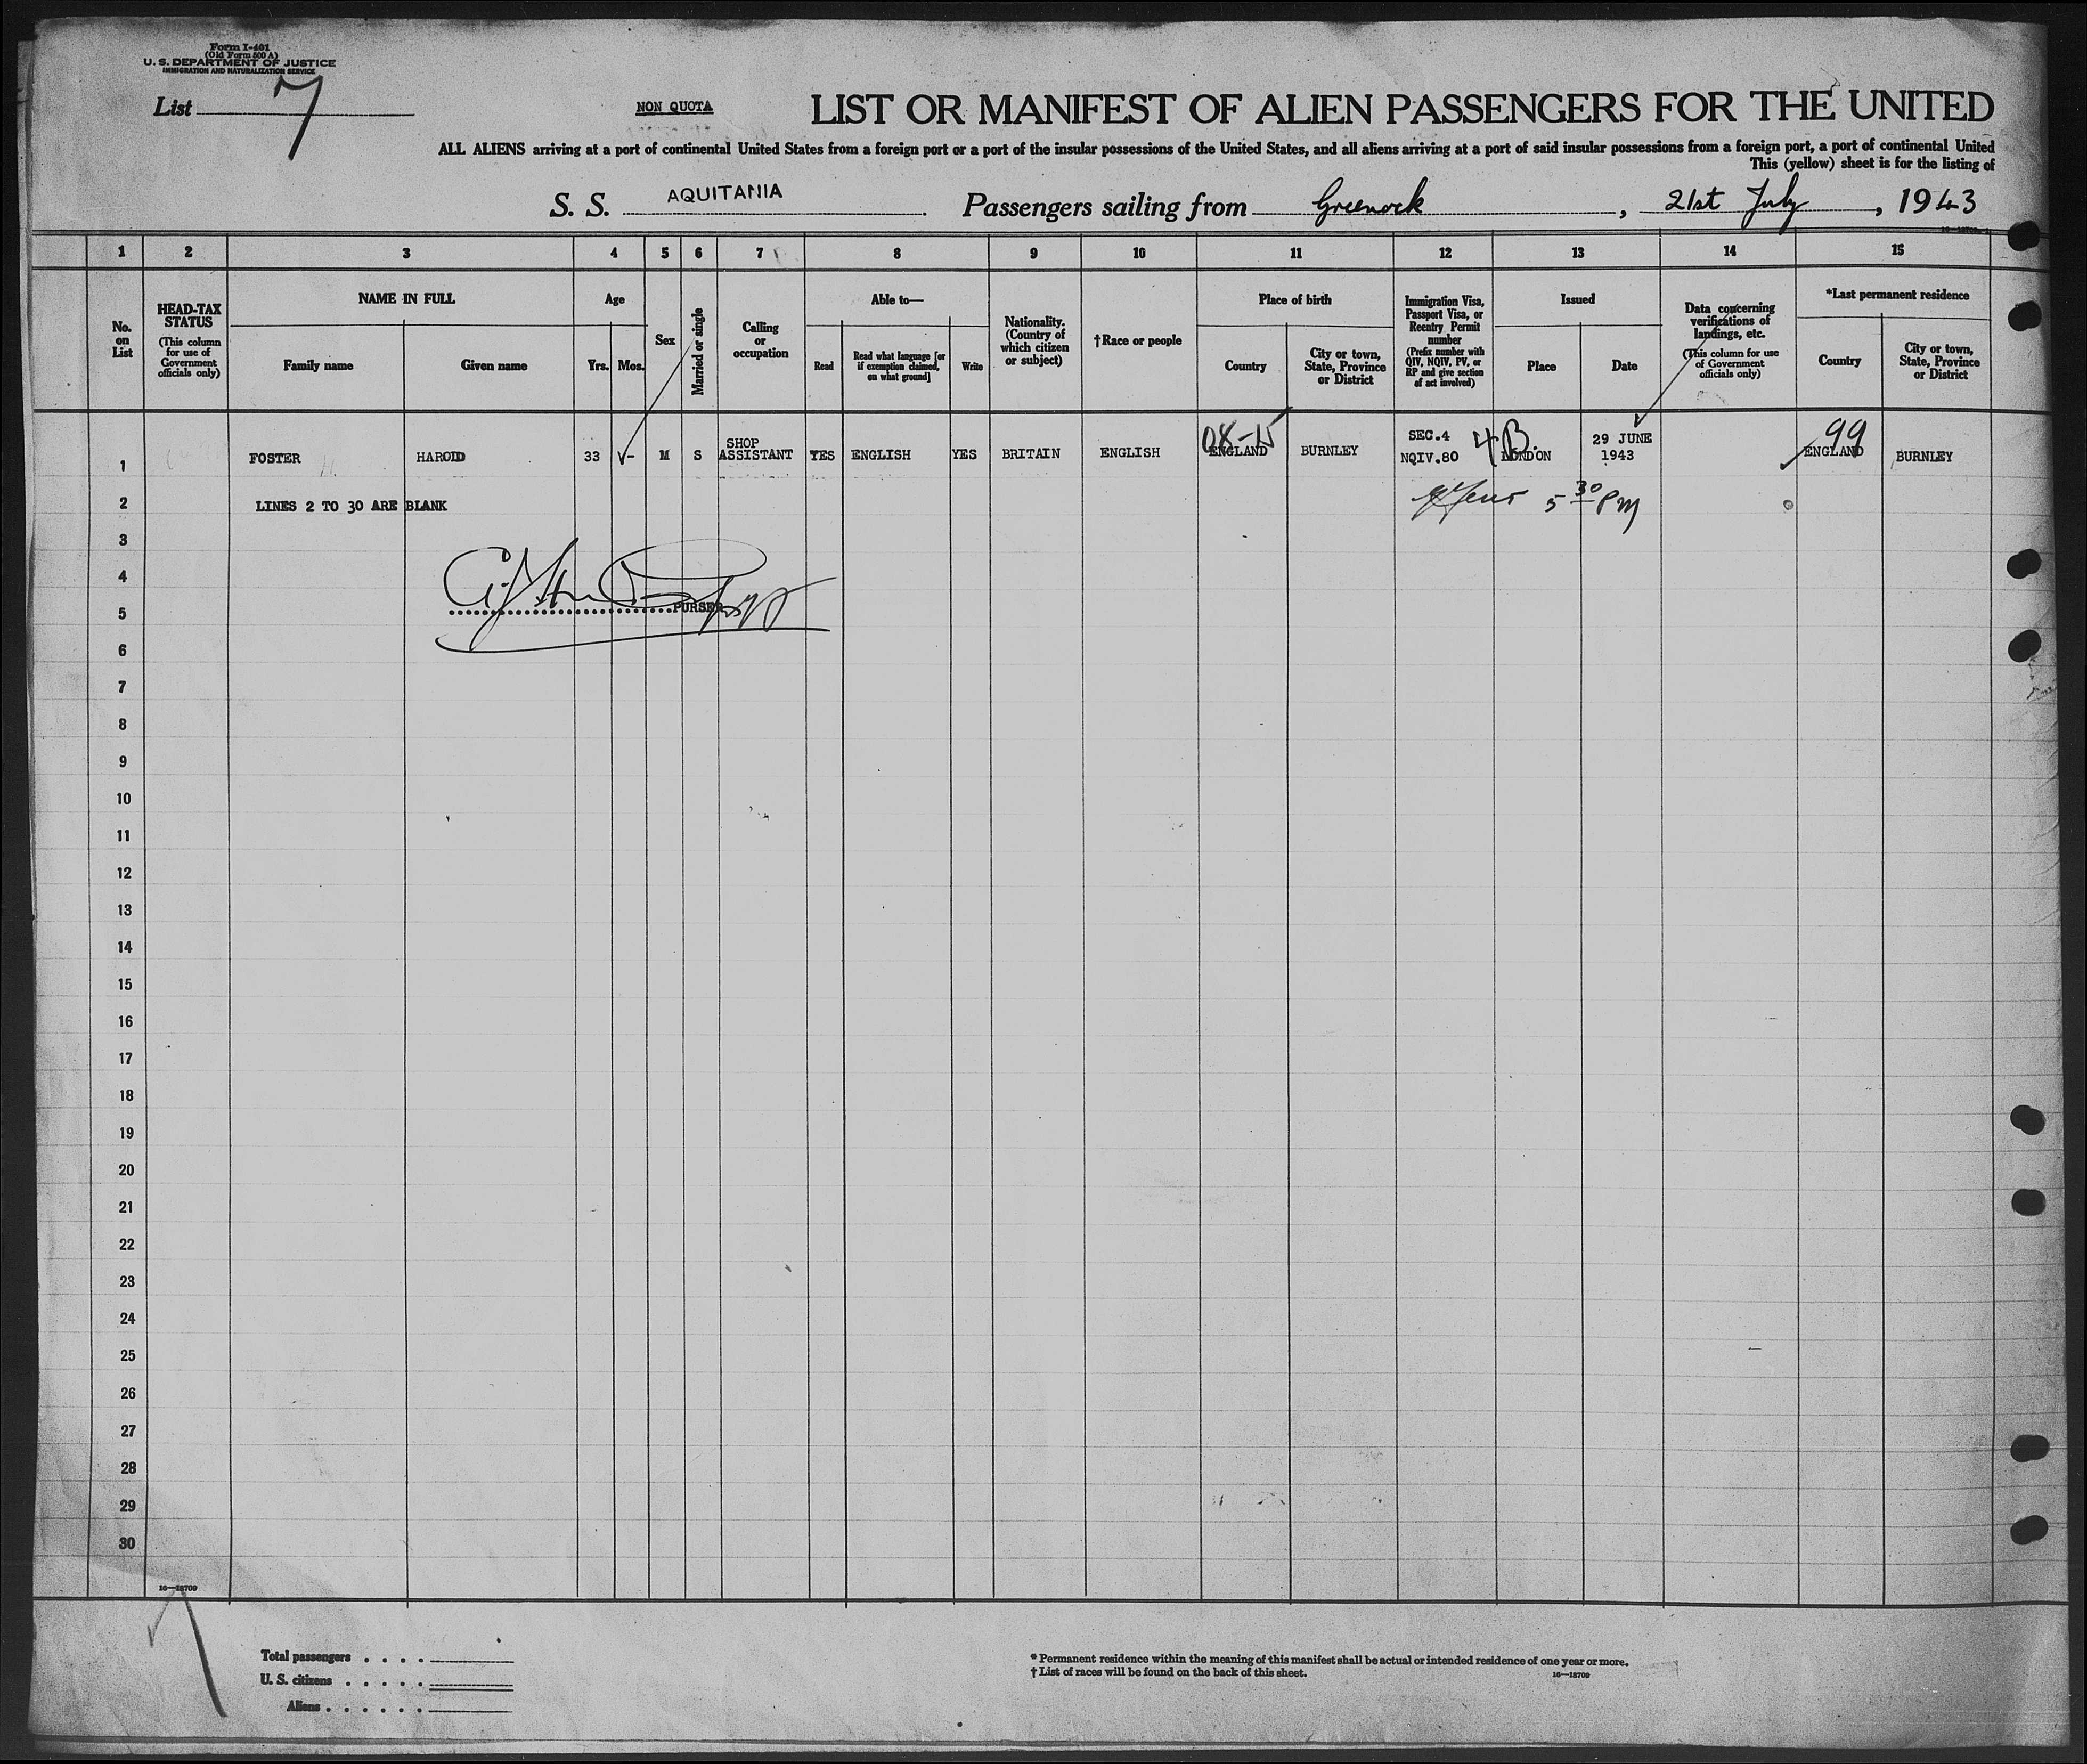 Form I-401
(Old Form 500 A)
U. S. DEPARTMENT OF JUSTICE
IMMIGRATION AND NATURALIZATION SERVICE
List 7
NON QUOTA
LIST OR MANIFEST OF ALIEN PASSENGERS FOR THE UNITED
ALL ALIENS arriving at a port of continental United States from a foreign port or a port of the insular possessions of the United States, and all aliens arriving at a port of said insular possessions from a foreign port, a port of continental United
This (yellow) sheet is for the listing of
S. S. AQUITANIA. Passengers sailing from Greenock, 21st July, 1943
1 2 3 4 5 6 7 8 9 10 11 12 13 14 15
No. on List
HEAD-TAX STATUS
(This column for use of Government officials only)
NAME IN FULL
Family name
Given name
Age
Yrs.
Mos.
Sex
Married or single
Calling or occupation
Able to—
Read
Read what language [or if exemption claimed, on what ground]
Write
Nationality. (Country of which citizen or subject)
†Race or people
Place of birth
Country
City or town, State, Province or District
Immigration Visa, Passport Visa, or Reentry Permit number
(Prefix number with QIV, NQIV, PV, or RP and give section of act involved)
Issued
Place
Date
Data concerning verifications of landings, etc.
(This column for use of Government officials only)
*Last permanent residence
Country
City or town, State, Province or District
08-15 4B. 99
SHOP SEC.4 29 JUNE
1 FOSTER HAROLD 33 – M S ASSISTANT YES ENGLISH YES BRITAIN ENGLISH ENGLAND BURNLEY NQIV.80 LONDON 1943 ENGLAND BURNLEY
2 LINES 2 TO 30 ARE BLANK 5 30 PM
3
4
5 PURSER
6
7
8
9
10
11
12
13
14
15
16
17
18
19
20
21
22
23
24
25
26
27
28
29
30
16—18709
7
Total passengers . . . .
U. S. citizens . . . . .
Aliens . . . . . .
* Permanent residence within the meaning of this manifest shall be actual or intended residence of one year or more.
† List of races will be found on the back of this sheet. 16—18709